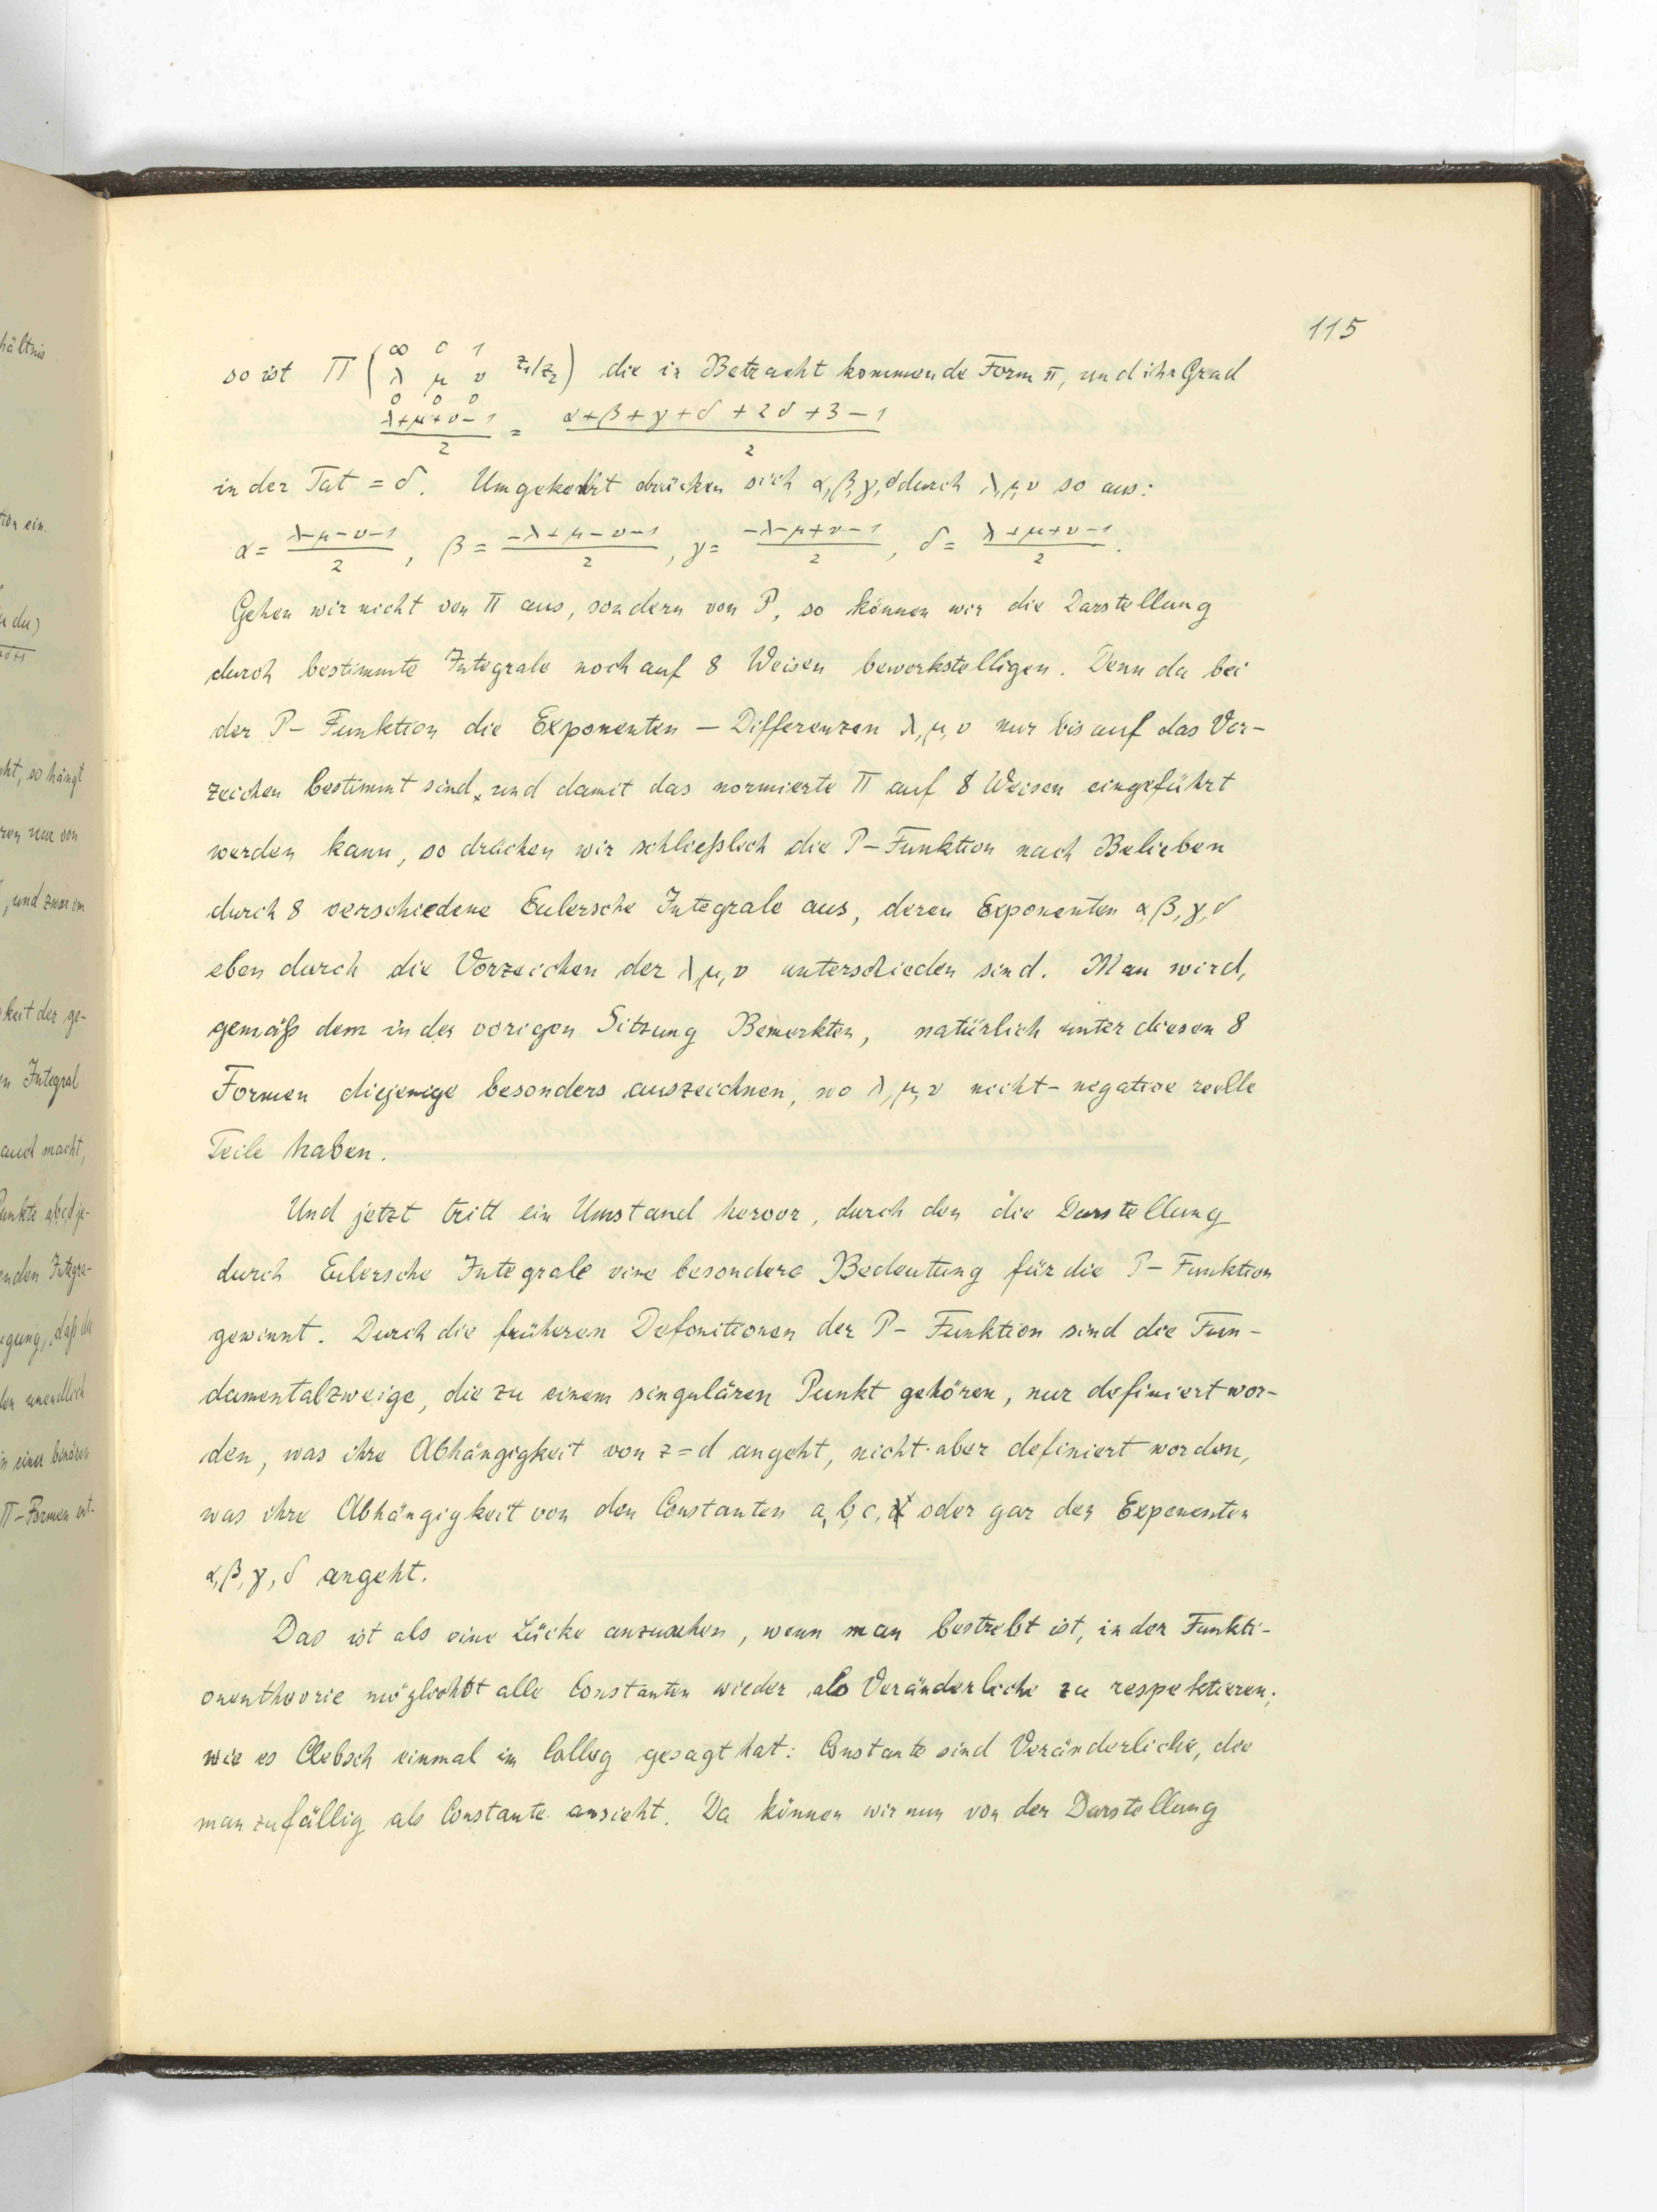 115
so ist Π (∞ 0 1 / λ μ ν / 0 0 0 z₁/z₂) die in Betracht kommende Form π, und ihr Grad
(λ+μ+ν-1)/2 = (α+β+γ+δ+2δ+3-1)/2
in der Tat = δ. Umgekehrt drücken sich α, β, γ, δ durch λ, μ, ν so aus:
α = (λ-μ-ν-1)/2, β = (-λ+μ-ν-1)/2, γ = (-λ-μ+ν-1)/2, δ = (λ+μ+ν-1)/2.
Gehen wir nicht von Π aus, sondern von P, so können wir die Darstellung
durch bestimmte Integrale noch auf 8 Weisen bewerkstelligen. Denn da bei
der P- Funktion die Exponenten - Differenzen λ, μ, ν nur bis auf das Vor-
zeichen bestimmt sind, und damit das normierte Π auf 8 Weisen eingeführt
werden kann, so drücken wir schließlich die P-Funktion nach Belieben
durch 8 verschiedene Eulersche Integrale aus, deren Exponenten α, β, γ, δ
eben durch die Vorzeichen der λ, μ, ν unterschieden sind. Man wird,
gemäß dem in der vorigen Sitzung Bemerkten, natürlich unter diesen 8
Formen diejenige besonders auszeichnen, wo λ, μ, ν nicht-negative reelle
Teile haben.
Und jetzt tritt ein Umstand hervor, durch den die Darstellung
durch Eulersche Integrale eine besondere Bedeutung für die P- Funktion
gewinnt. Durch die früheren Definitionen der P- Funktion sind die Fun-
damentalzweige, die zu einem singulären Punkt gehören, nur definiert wor-
den, was ihre Abhängigkeit von z=d angeht, nicht aber definiert worden,
was ihre Abhängigkeit von den Constanten a, b, c, oder gar den Exponenten
α, β, γ, δ angeht.
Das ist als eine Lücke anzusehen, wenn man bestrebt ist, in der Funkti-
onentheorie möglichst alle Constanten wieder als Veränderliche zu respektieren;
wie es Clebsch einmal im Colleg gesagt hat: Constante sind Veränderliche, die
man zufällig als Constante ansieht. Da können wir nun von der Darstellung
hältnis
tion ein.
du)
ht, so hängt
ren nur von
, und zwar im
keit der ge-
n Integral
and macht,
unkte abcd je-
nden Integra-
gung, daß die
den unendlich
in einer binären
Π-Formen ent-